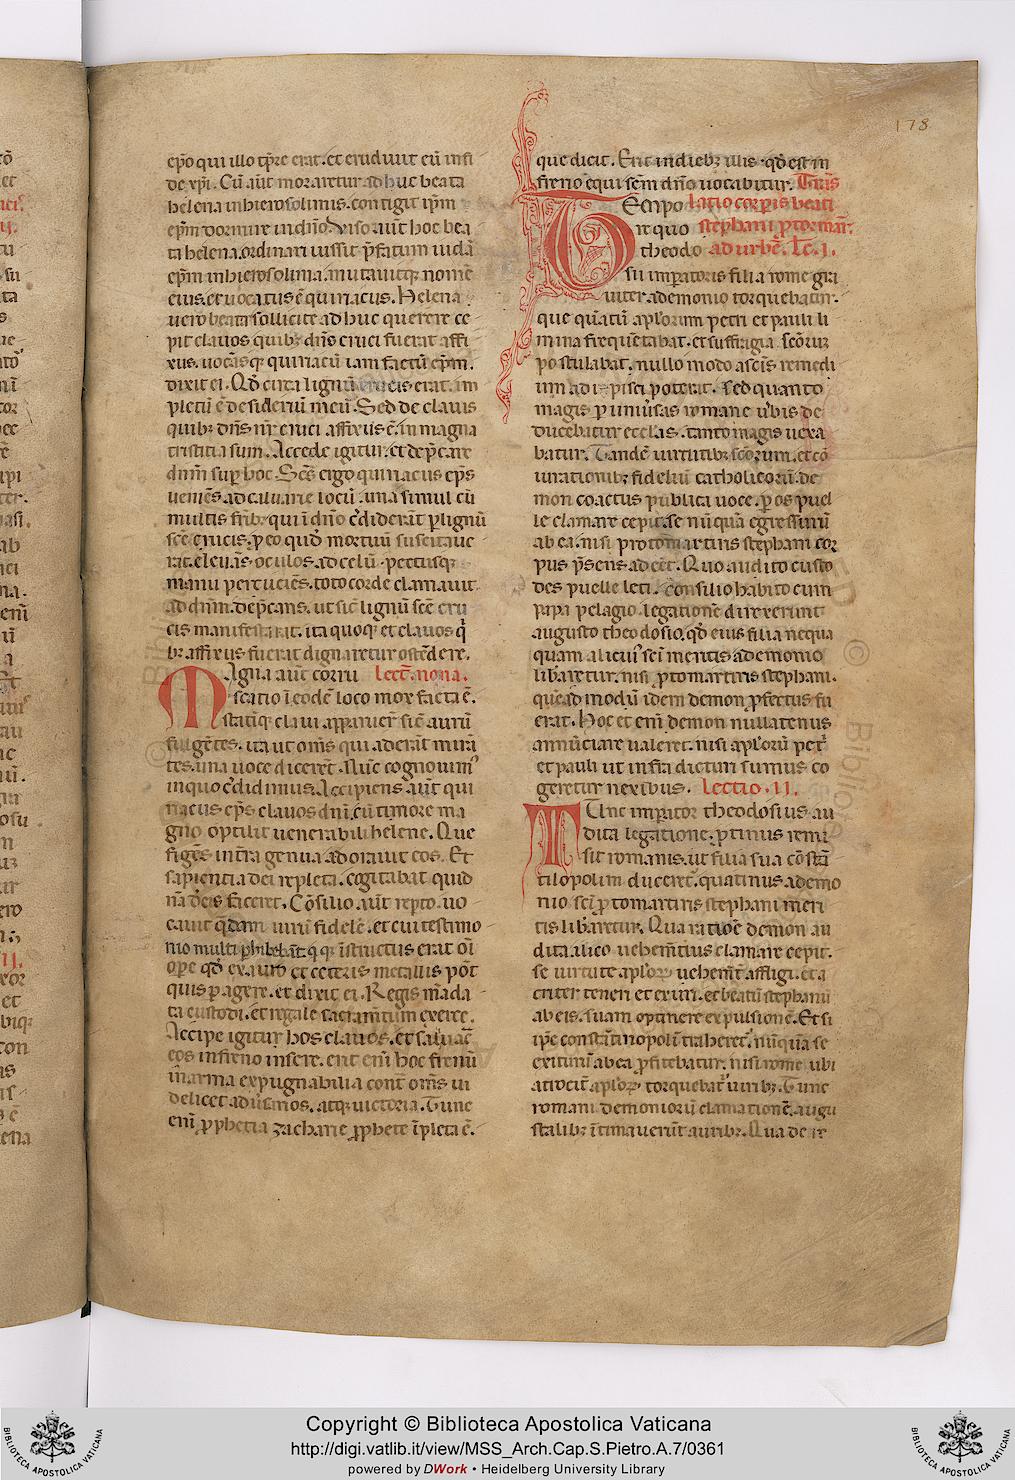 178
ep̄o qui illo tp̄re erat. et erudiuit eū in fi
de xp̄i. Cū aūt moraretur adhuc beata
helena in hierosolimis. contigit ip̄m
ep̄m dormire in dn̄o. Viso aūt hoc bea
ta helena. ordinari iussit p̄fatum iudā
ep̄m in hierosolima. mutauitq; nomē
eius. et uocatus ē quiriacus. Helena
uero beata sollicite adhuc querere ce
pit clauos quibȝ dn̄s cruci fuerat affi
xus. uocāsq; quiriacū iam factū ep̄m.
dixit ei. Qd̄ circa lignū crucis erat. im
pletū ē desideriū meū. Sed de clauis
quibȝ dn̄s nr̄ cruci affixus ē. in magna
tristitia sum. Accede igitur. et dep̄care
dnm̄ sup̄ hoc. Sc̄s ergo quiriacus ep̄s
ueniēs ad caluarie locū. una simul cū
multis fr̄ibȝ qui ī dn̄o c̄diderāt p̄ lignū
sc̄e crucis. p̄ eo quod mortuū suscitaue
rat. eleuās oculos ad celū. pectusq;
manu percuciēs. toto corde clamauit
ad dnm̄. dep̄cans. ut sic lignū sc̄e cru
cis manifestarat. ita quoq; et clauos q̇
bȝ affixus fuerat dignaretur ostēdere.
Magna aūt corru lect̄. nona.
scatio ī eodē loco mox facta ē.
Statīq; claui apparuer̄t sic aurū
fulgētes. ita ut om̄s qui aderāt mirā
tes. una uoce dicerēt. Nūc cognouim᷒
in quo c̄didimus. Accipiens aūt qui
riacus ep̄s clauos dn̄i. cū timore ma
gno optulit uenerabili helene. Que
figēs in terra genua adorauit eos. Et
sapientia dei repleta. cogitabat quid
na de eis faceret. Cōsilio aūt rep̄to. uo
cauit q̄dam uirū fidelē. et cui testimo
nio multi phibebāt q̇ q; īstructus erat oī
op̄e qd̄ ex auro et ceteris metallis pōt
quis p̄agere. et dixit ei. Regis māda
ta custodi. et regale sacram̄tum exerce.
Accipe igitur hos clauos. et saluac̄
eos in freno insere. erit eni hoc frenū
in arma expugnabilia cont̄ om̄s ui
delicet aduersarios. atq; uictoria. Tunc
eni p̄phetia zacharie p̄phete īpleta ē.
que dicit. Erit in diebȝ illis. qd̄ est in
freno equi sc̄m dn̄o uocabitur. Trans
Tempo latio corp̄is beati
re quo stephani p̄tomart̄.
theodo ad urbē. Lc̄. i.
sii imp̄atoris filia rome gra
uiter a demonio torquebatur.
que quātū apl̄orum petri et pauli li
mina frequetabat. et suffragia sc̄orum
postulabat. nullo modo ascīs remedi
um adipisci poterat. Sed quanto
magis p̄ uniūsas romane urbis de
ducebatur eccl̄as. tanto magis uexa
batur. Tandē uirtutibȝ sc̄orum. et cō
iurationibȝ fideliū catholicorū. de
mon coactus publica uoce. p̄ os puel
le clamare cepit. se nūquā egressurū
ab ea. nisi protomartiris stephani cor
pus p̄sens adēēt. Quo audito custo
des puelle leti. consilio habito cum
papa pelagio. legationē direxerunt
augusto theodosio. qd̄ eius filia nequa
quam alicui᷒ sc̄i meritis a demonio
libaretur. nisi p̄tomartiris stephani.
quēadmodū idem demon p̄fectus fu
erat. Hoc et eni demon nullatenus
annūciare ualeret. nisi apl̄orū petr̄
et pauli ut infra dicturi sumus co
geretur nexibus. Lectio. II.
Tunc imp̄ator theodosius au
dita legatione. p̄tinus remi
sit romanis. ut filia sua cōstā
tinopolim ducerēt. quatinus a demo
nio sc̄i p̄tomartiris stephani meri
tis lib̄aretur. Qua ratiōe demon au
dita. ilico uehem̄tius clamare cepit.
se uirtute apl̄orꝝ uehem̄t affligi. et a
criter teneri et exuri. et beatū stephanū
ab eis. suam optinere expulsionē. Et si
ip̄e constātinopolī traheret̄. nūquā se
exiturū ab ea p̄fitebatur. nisi rome ubi
atrocit̄ apl̄orꝝ torquebat᷑ uiribȝ. Tunc
romani demoniorū clamationē. augu
stalibȝ ītimauerūt auribȝ. Qua de re
Copyright © Biblioteca Apostolica Vaticana
http://digi.vatlib.it/view/MSS_Arch.Cap.S.Pietro.A.7/0361
powered by DWork • Heidelberg University Library